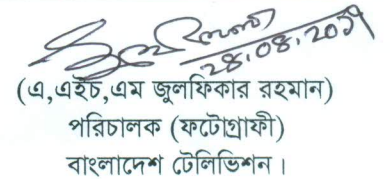 28.08.2019
(এ,এইচ,এম জুলফিকার রহমান)
পরিচালক (ফটোগ্রাফী)
বাংলাদেশ টেলিভিশন।